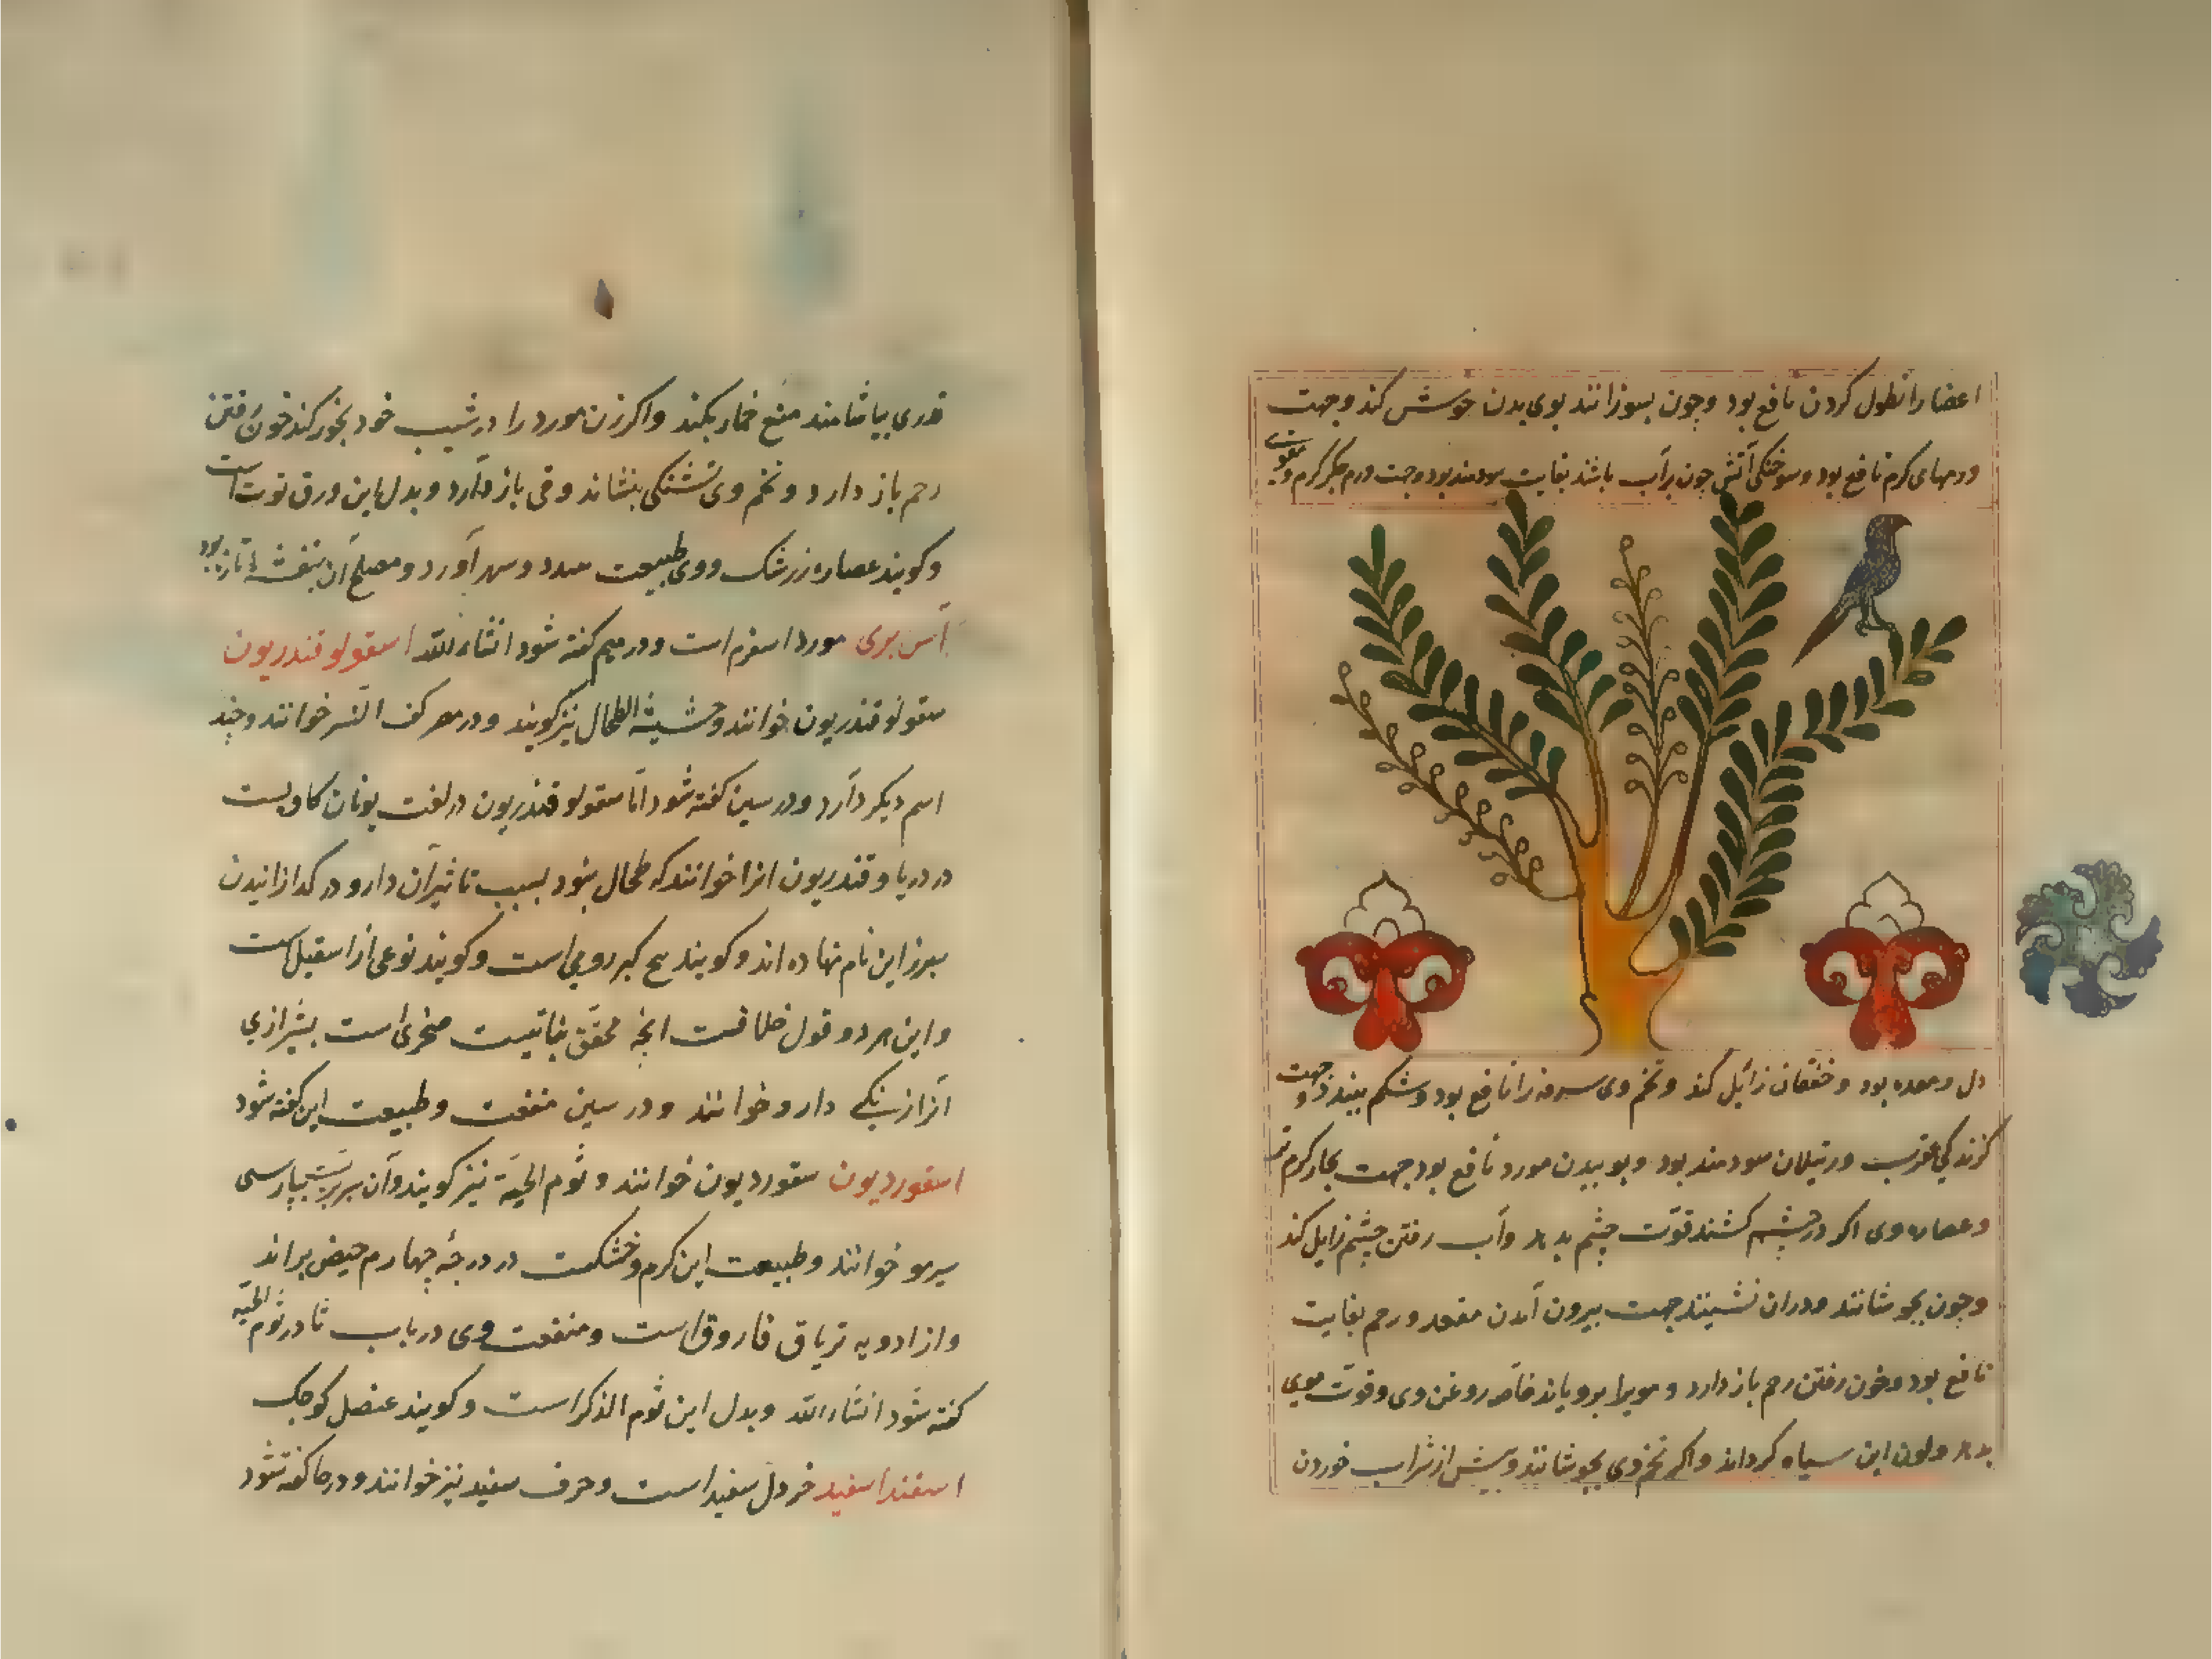 اعضا را نطول کردن نافع بود و چون بسوزانند بوی بدن خوش کند و جهت
ورمهای گرم نافع بود و سوختگی آتش چون برآب باشد بغایت سودمند بود و جهت ورم جگر گرم و مقوی
دل و معده بود و خفقان زایل کند و تخم وی سرفه را نافع بود و شکم ببندد و جهت
گزندگی عقرب و رتیلان سودمند بود و بوییدن مورد نافع بود جهت بخار گرم تر
و عصاره وی اگر در چشم کشند قوّت چشم بدهد و آب رفتن چشم زایل کند
و چون بجوشانند و دران نشینند جهت بیرون آمدن مقعد و رحم بغایت
نافع بود و خون رفتن رحم باز دارد و مویرا برویاند خاصه روغن وی و قوّت موی
بدهد و لون این سیاه گرداند و اگر تخم وی بجوشانند و پیش از شراب خوردن
قدری بیاشامند منع خمار بکند و اگر زن مورد را در شیب خود بخور کند خون رفتن
رحم باز دارد و تخم وی تشنگی بنشاند و قی باز دارد و بدل این ورق توت است
و گویند عصاره زرشک و وی طبیعت ببندد و سهر آورد و مصلح آن بنفشه تازه بود
آس بری مورد اسفرم است و در میم گفته شود انشاءالله اسقولوقندریون
سقولوقندریون خوانند و حشیشة الطحال نیز گویند و در مصر کف النسر خوانند و چند
اسم دیگر دارد و در سین گفته شود امّا سقولوقندریون در لغت یونان
در دریا و قندریون انرا خوانند که طحال بنود بسبب تاثیر آن دارو در گدازانیدن
سپرز این نام نهاده اند و گویند بیخ کبر رومی است و گویند نوعی از اسقیل است
و این هر دو قول خلافست انچه محقّق نباتیست صخری است بشیرازی
آنرا زنگی دارو خوانند و در سین منفعت و طبیعت این گفته شود
اسقوردیون سقوردیون خوانند و ثوم الحیّة نیز گویند و آن سیر بریست بپارسی
سیرمو خوانند و طبیعت این گرم و خشکست در درجهٔ چهارم حیض براند
و از ادویه تریاق فاروق است و منفعت وی در باب ثا در ثوم الحیّه
گفته شود انشاءالله و بدل این ثوم الذکر است و گویند عنصل کوچک
اسفند اسفید خردل سفید است و حرف سفید نیز خوانند و در حا گفته شود